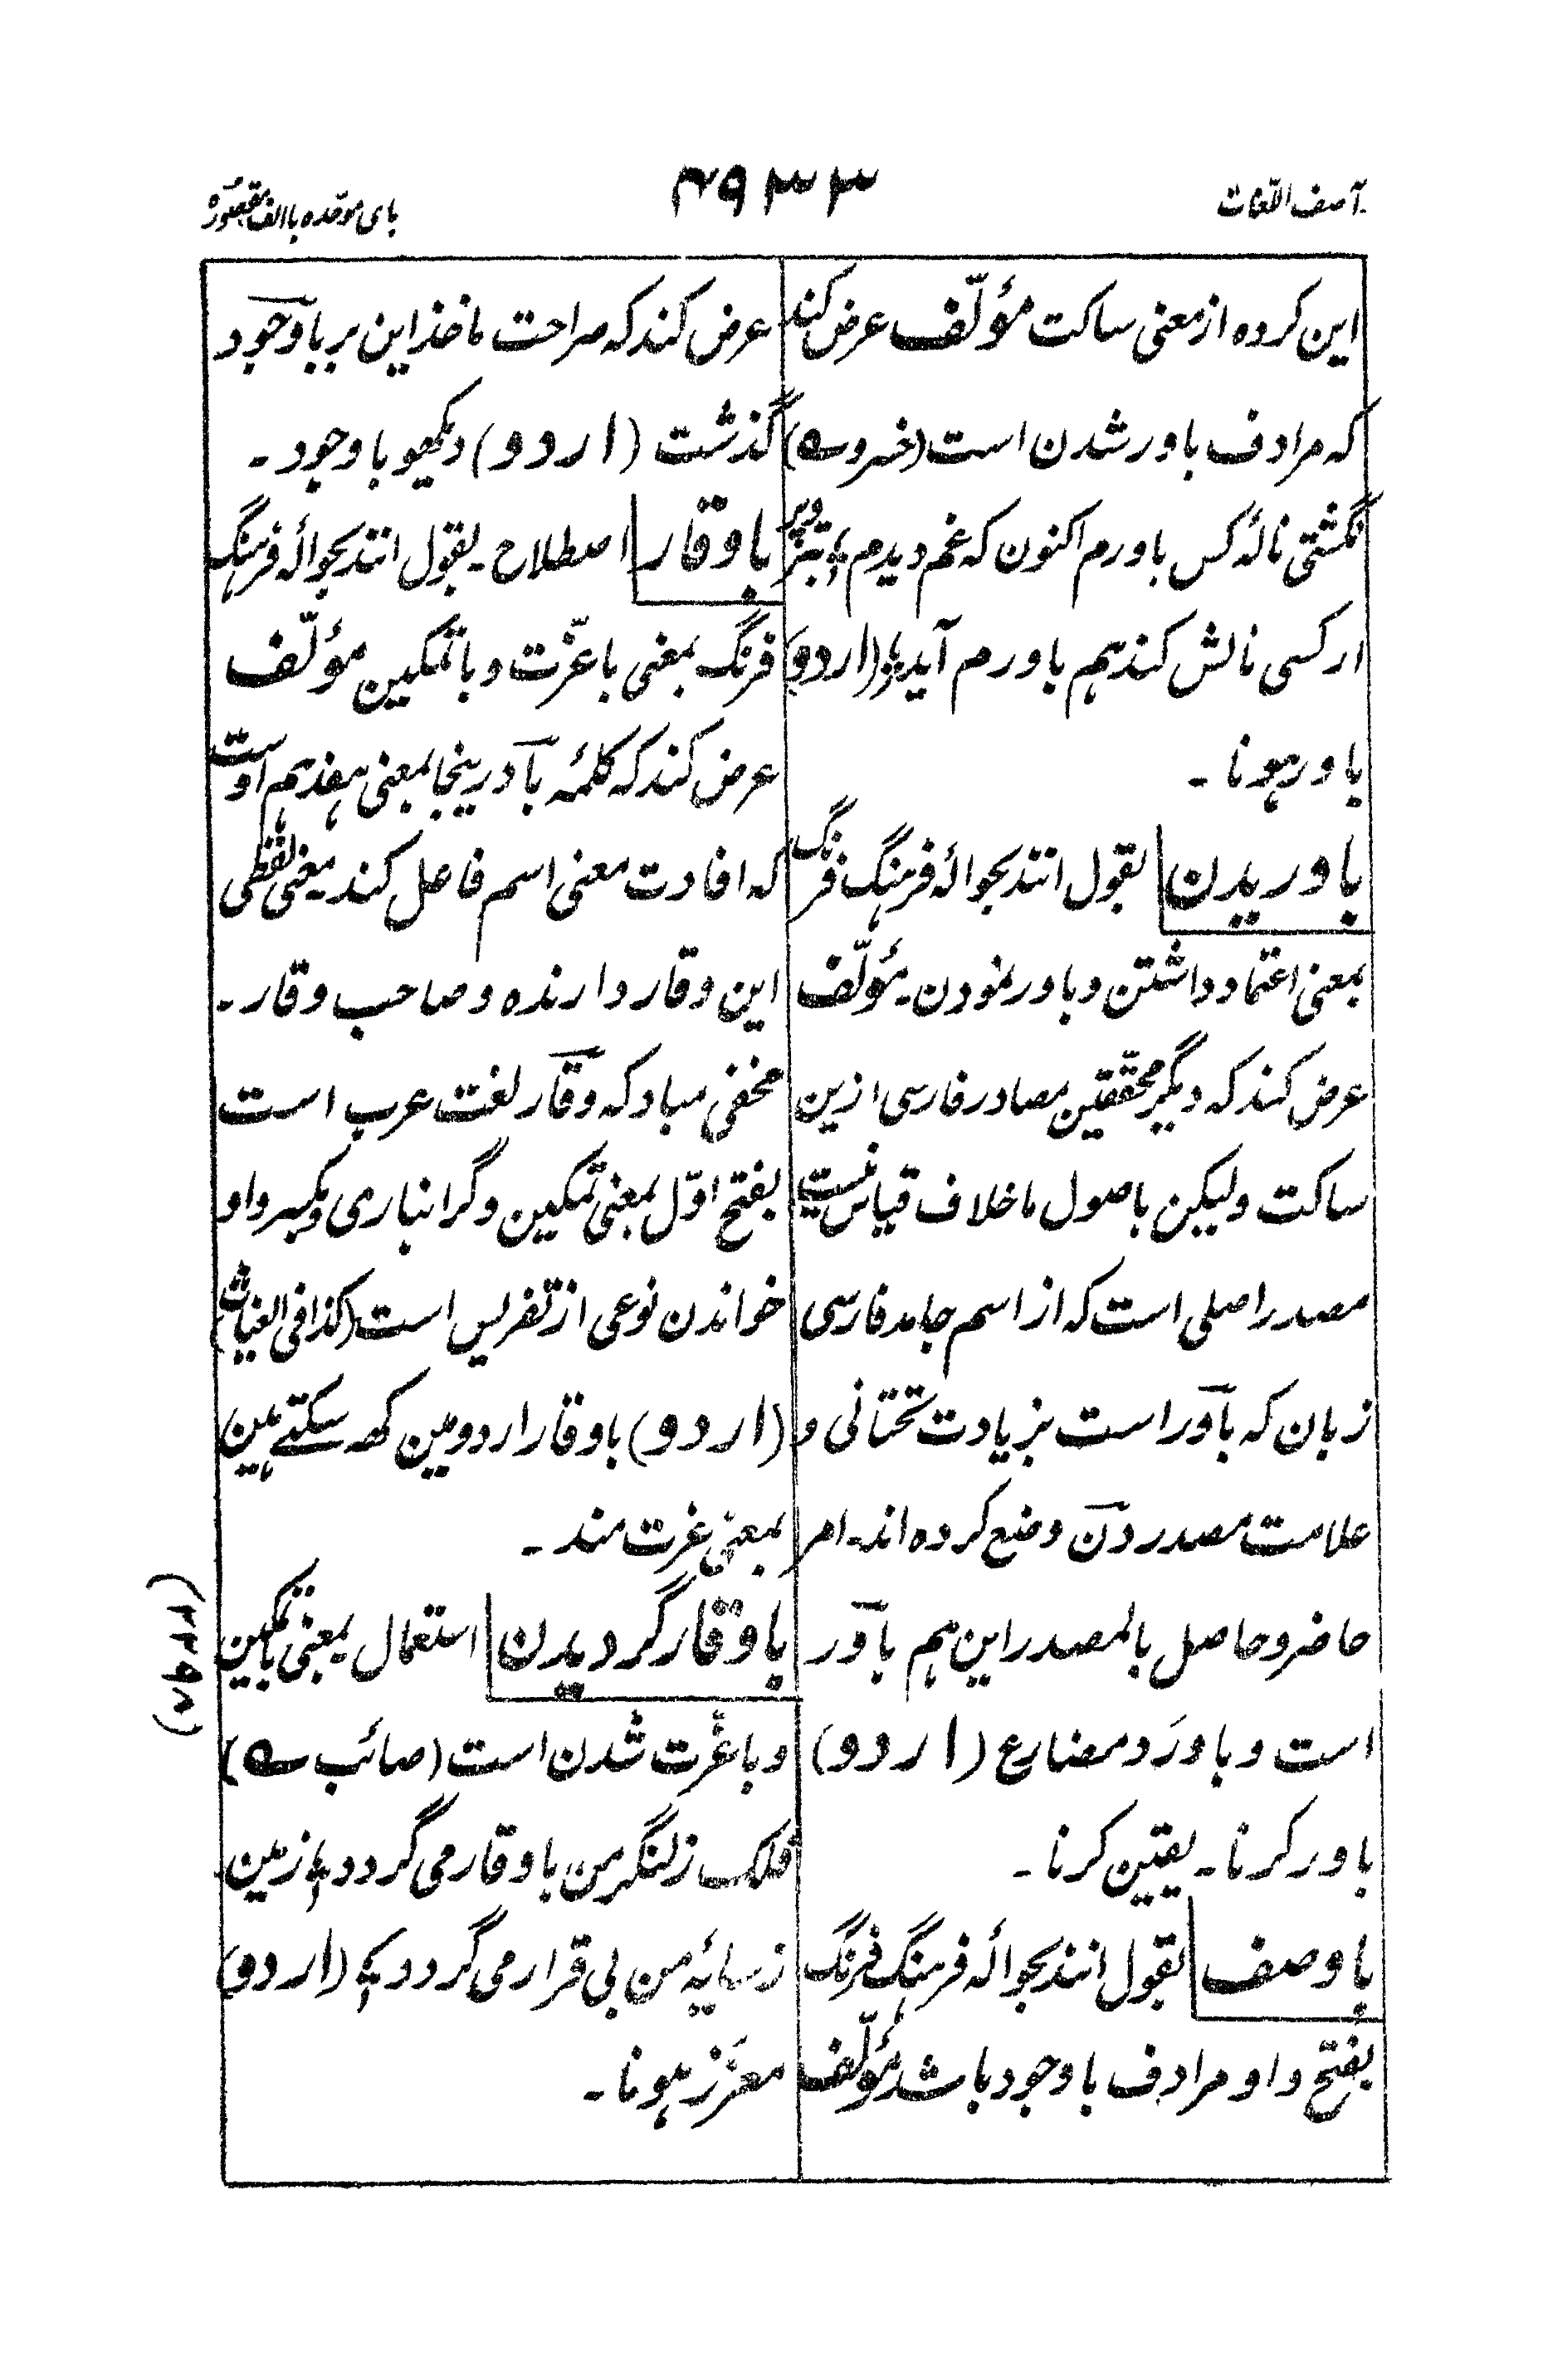 آصف اللغات
۴۹۳۳
بای موحّده با الف مقصوره
این کرده از معنی ساکت مؤلّف عرض کند
که مرادف باور شدن است (خسرو ے)
نگشتی نالۂ کس باورم اکنون که غم دیدم ؛
ار کسی نالش کند هم باورم آید ؛ (اردو)
باور ہونا ۔
باوریدن بقول انند بحوالۂ فرہنگ فرنگ
بمعنی اعتماد داشتن و باور نمودن ۔ مؤلّف
عرض کند که دیگر محقّقین مصادر فارسی ازین
ساکت ولیکن باصول ما خلاف قیاس نیست
مصدر اصلی است که از اسم جامد فارسی
زبان که باور است بزیادت تحتانی و
علامت مصدر دن وضع کرده اند ۔ امر
حاضر و حاصل بالمصدر این هم باور
است و باورَد مضارع (اردو)
باور کرنا ۔ یقین کرنا ۔
باوصف بقول انند بحوالۂ فرہنگ فرنگ
بفتح واو مرادف باوجود باشد مؤلّف
عرض کند که صراحت ماخذ این بر باوجود
گذشت (اردو) دیکھو باوجود ۔
باوقار اصطلاح ۔ بقول انند بحوالۂ فرہنگ
فرنگ بمعنی باعزّت و باتمکین مؤلّف
عرض کند که کلمۂ با درینجا بمعنی ہفدہم اوست
که افادت معنی اسم فاعل کند یعنی لفظی
این وقار دارنده و صاحب وقار ۔
مخفی مباد که وقار لغت عرب است
بفتح اوّل بمعنی تمکین و گرانباری و بکسر واو
خواندن نوعی از تفریس است (کذا فی الغیاث)
(اردو) باوقار اردو مین کہہ سکتے ہین
بمعنی عزت مند ۔
باوقار گردیدن استعمال بمعنی باتمکین
و باعزّت شدن است (صائب ے)
فلک ز لنگر من باوقار می گردد ؛ زمین
ز سایۂ من بی قرار می گردد ؛ (اردو)
معزّز ہونا ۔